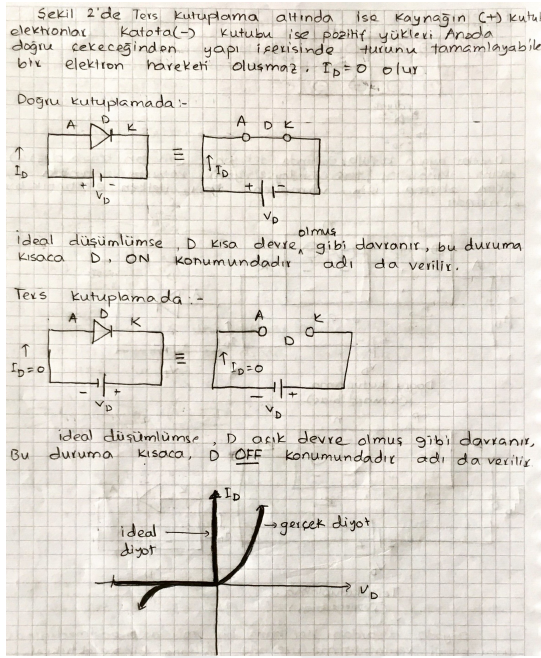 Şekil 2'de Ters kutuplama altında ise kaynağın (+) kutul
elektronlar katota(-) kutubu ise pozitif yükleri Anoda
doğru çekeceğinden yapı içerisinde turunu tamamlayabile
bir elektron hareketi oluşmaz. ID=0 olur
Doğru kutuplamada:-
A D K
ID
+ -
VD
≡
A D K
ID
+ -
VD
ideal düşümlümse, D kısa devre olmuş gibi davranır, bu duruma
kısaca D, ON konumundadır adı da verilir.
Ters kutuplamada:-
A D K
ID=0
- +
VD
≡
A D K
ID=0
- +
VD
ideal düşümlümse, D açık devre olmuş gibi davranır,
Bu duruma kısaca, D OFF konumundadır adı da verilir
ID
ideal diyot
gerçek diyot
VD